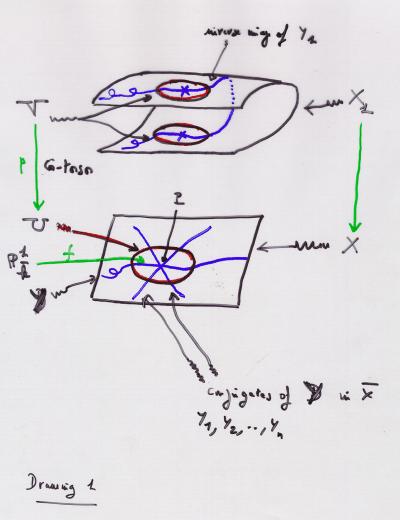 inverse img of Y₁
V
X₁
p
G-torsor
P
U
P¹
k
f
X
conjugates of Y in X̄
Y₁, Y₂, .., Yₙ
Drawing 1